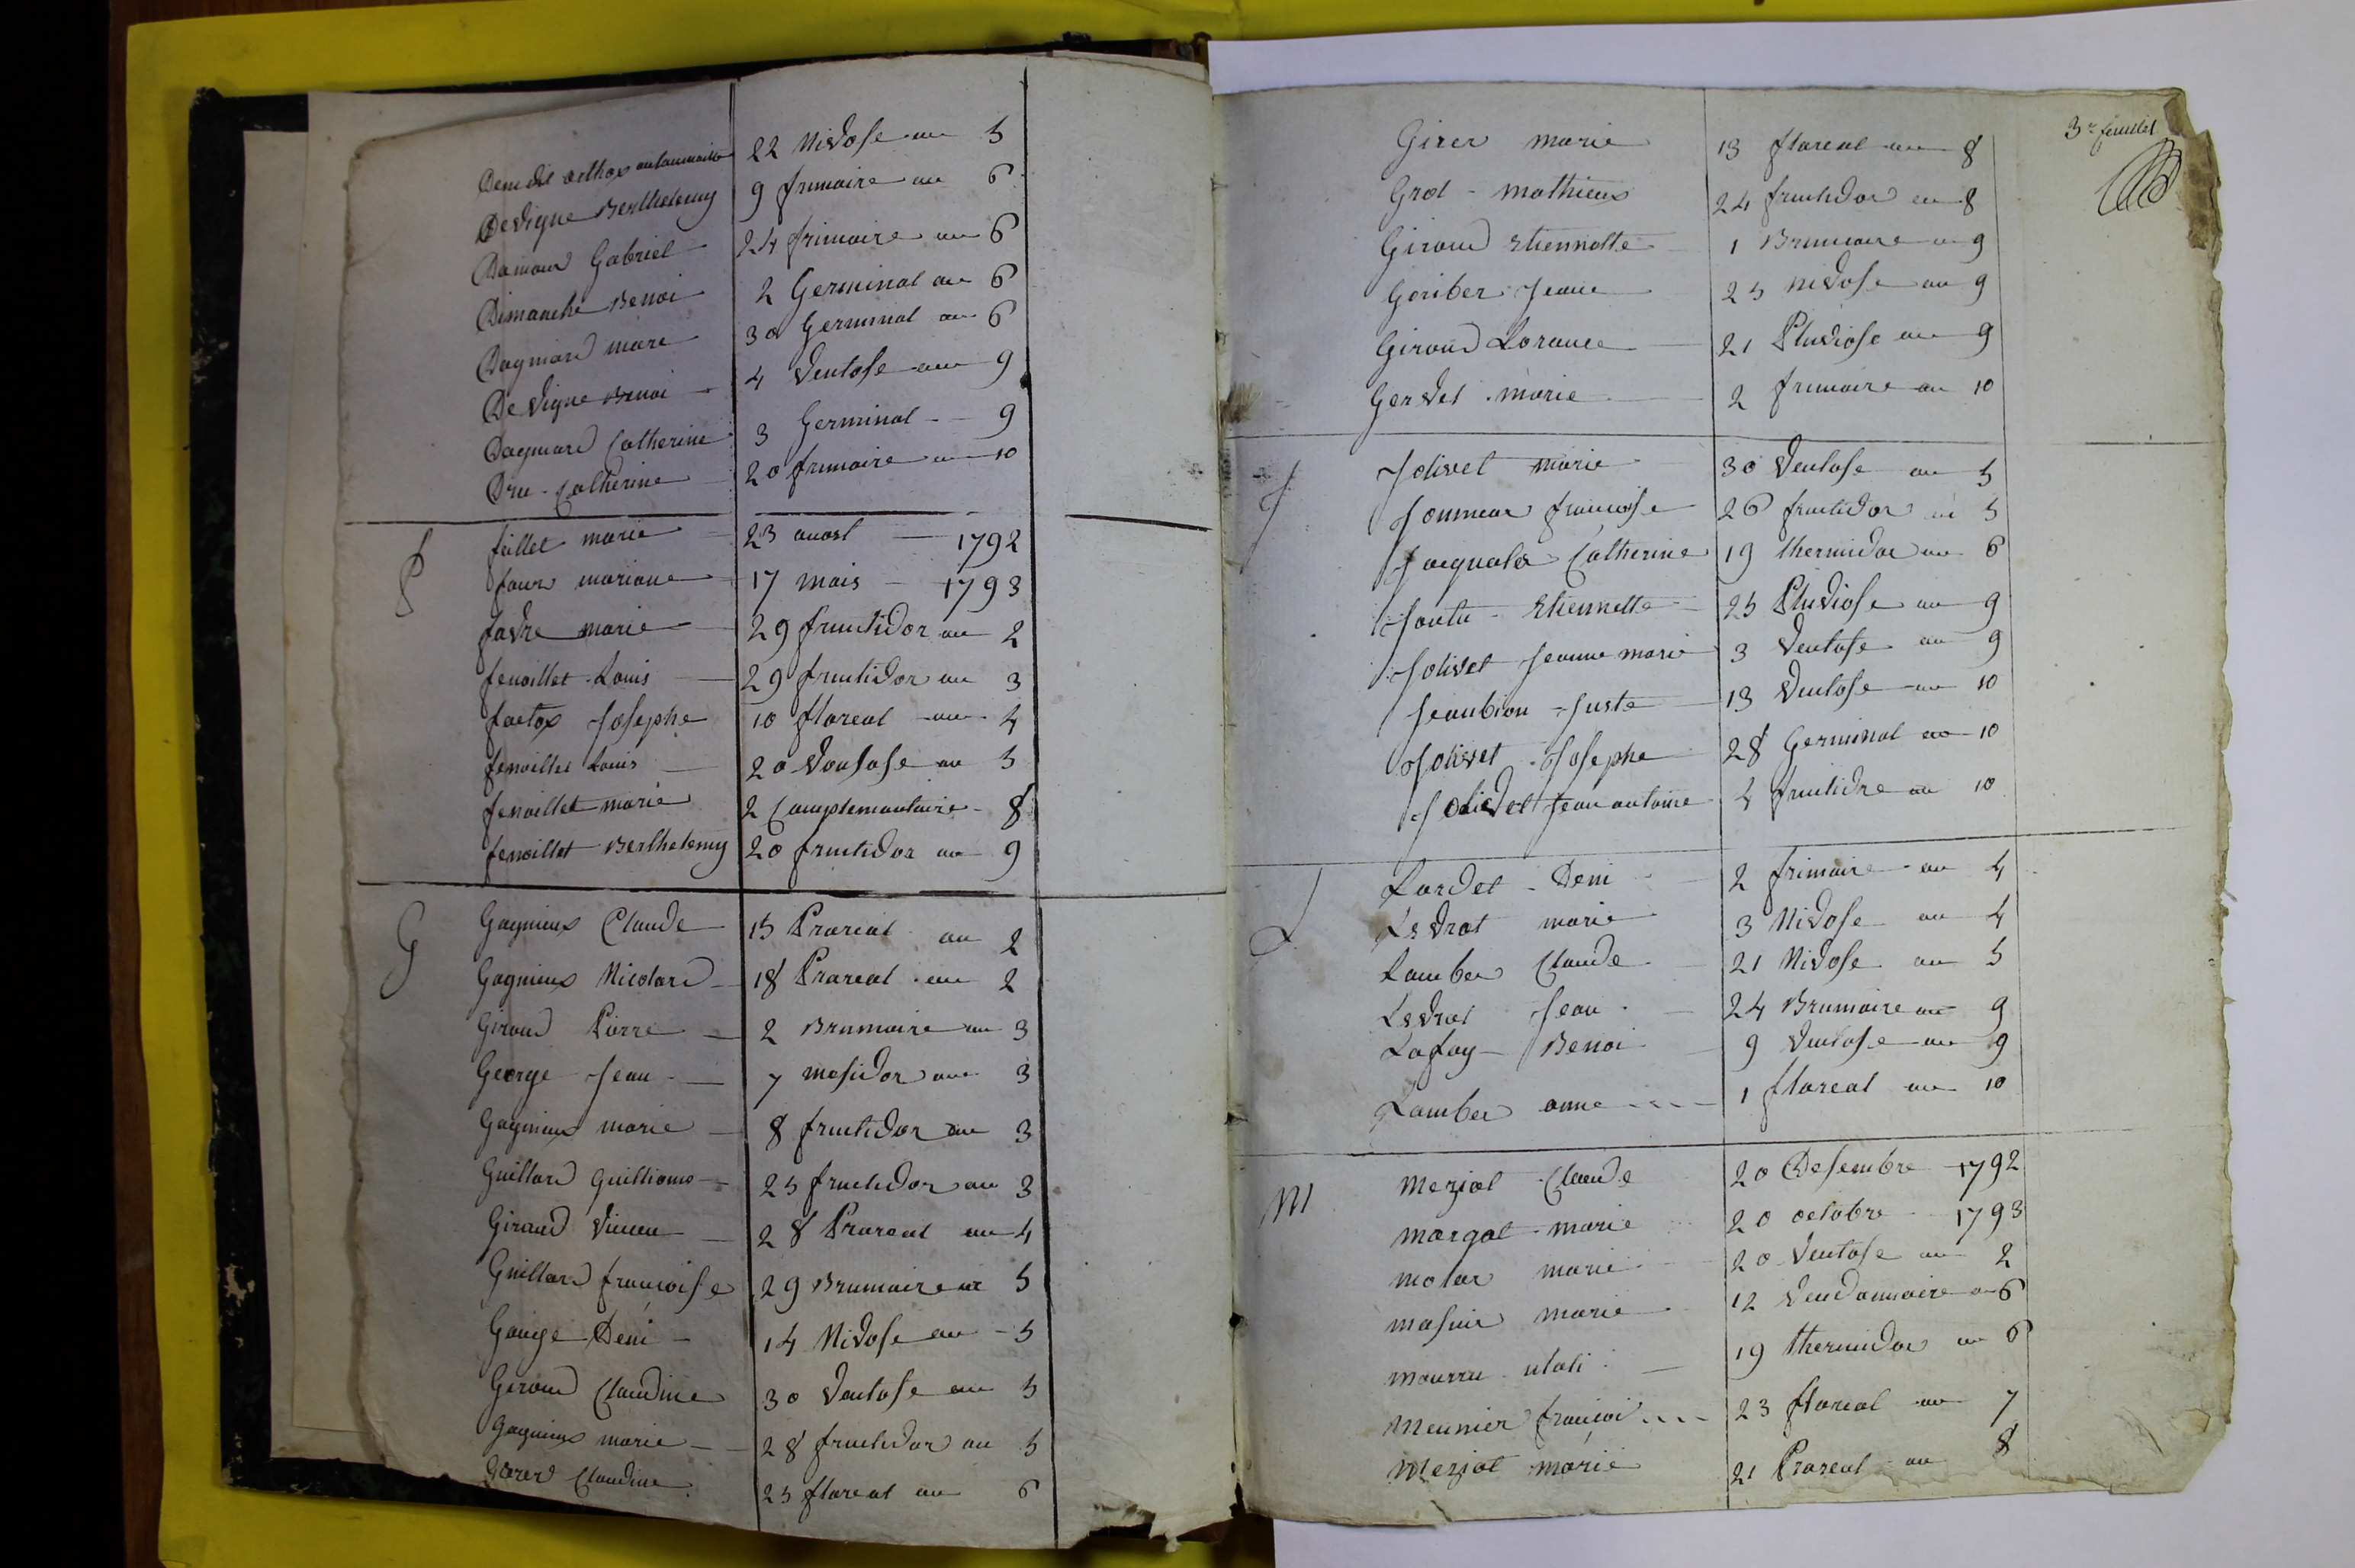 22 Nivose an 5
Devigne Berthelemy 9 frimaire an 6
Damour Gabriel 24 frimaire an 6
Dimanche Benoi 2 Germinal an 6
Dagniard marie 30 Germinal an 6
Devigne Benoi 4 Ventose an 9
Dagniard Catherine 3 Germinal 9
Dru Catherine 20 frimaire an 10
F
fillet marie 23 auost 1792
faure mariane 17 mais 1793
favre marie 29 fructidor an 2
fenoillet Louis 29 fructidor an 3
Josephe 10 floreal an 4
fenoillet Louis 20 an 5
fenoillet marie 2 Complemantaire 8
fenoillet Berthelemy 20 fructidor an 9
G
Gagnieux Claude 15 Prarial an 2
Gagnieux Nicolard 18 Prareal an 2
Giroud Pierre 2 Brumaire an 3
George Jean 7 mesidor an 3
Gagnieux marie 8 fructidor an 3
Guillard Guilliome 25 fructidor an 3
Giraud 28 Prareal an 4
Guillard francoise 29 Brumaire an 5
Gouge Deni 14 Nivose an 5
Geroud Claudine 30 Ventose an 5
Gagnieux marie 28 fructidor an 5
Claudine 25 floreal an 6
3e feuillet
Girer marie 13 floreal an 8
Grol mathieux 24 fructidor an 8
Giroud Etiennette 1 Brumaire an 9
Goriber Jeane 25 nivose an 9
Giroud Lorance 21 Pluviose an 9
Gervet marie 2 frimaire an 10
J
Jolivet marie 30 Ventose an 5
francoise 26 fructidor an 5
Catherine 19 thermidor an 6
Etiennette 25 Pluviose an 9
Jolivet Jeanne marie 3 Ventose an 9
Jeanbion Juste 13 Ventose an 10
Jolivet Josephe 28 Germinal an 10
Jolivet Jean antoine 4 fructidre an 10
L
Lardet Deni 2 frimaire an 4
Levrat marie 3 Nivose an 4
Lamber Claude 21 Nivose an 5
Levrat Jean 24 Brumaire an 9
Lafay Benoi 9 Ventose an 9
Lamber anne 1 floreal an 10
M
Meziat Claude 20 Desembre 1792
margat marie 20 octobre 1793
molar marie 20 Ventose an 2
marie 12 Vendamiaire an 6
19 thermidor an 6
Meunier françoi 23 floreal an 7
Meziat marie 21 Prareal an 8